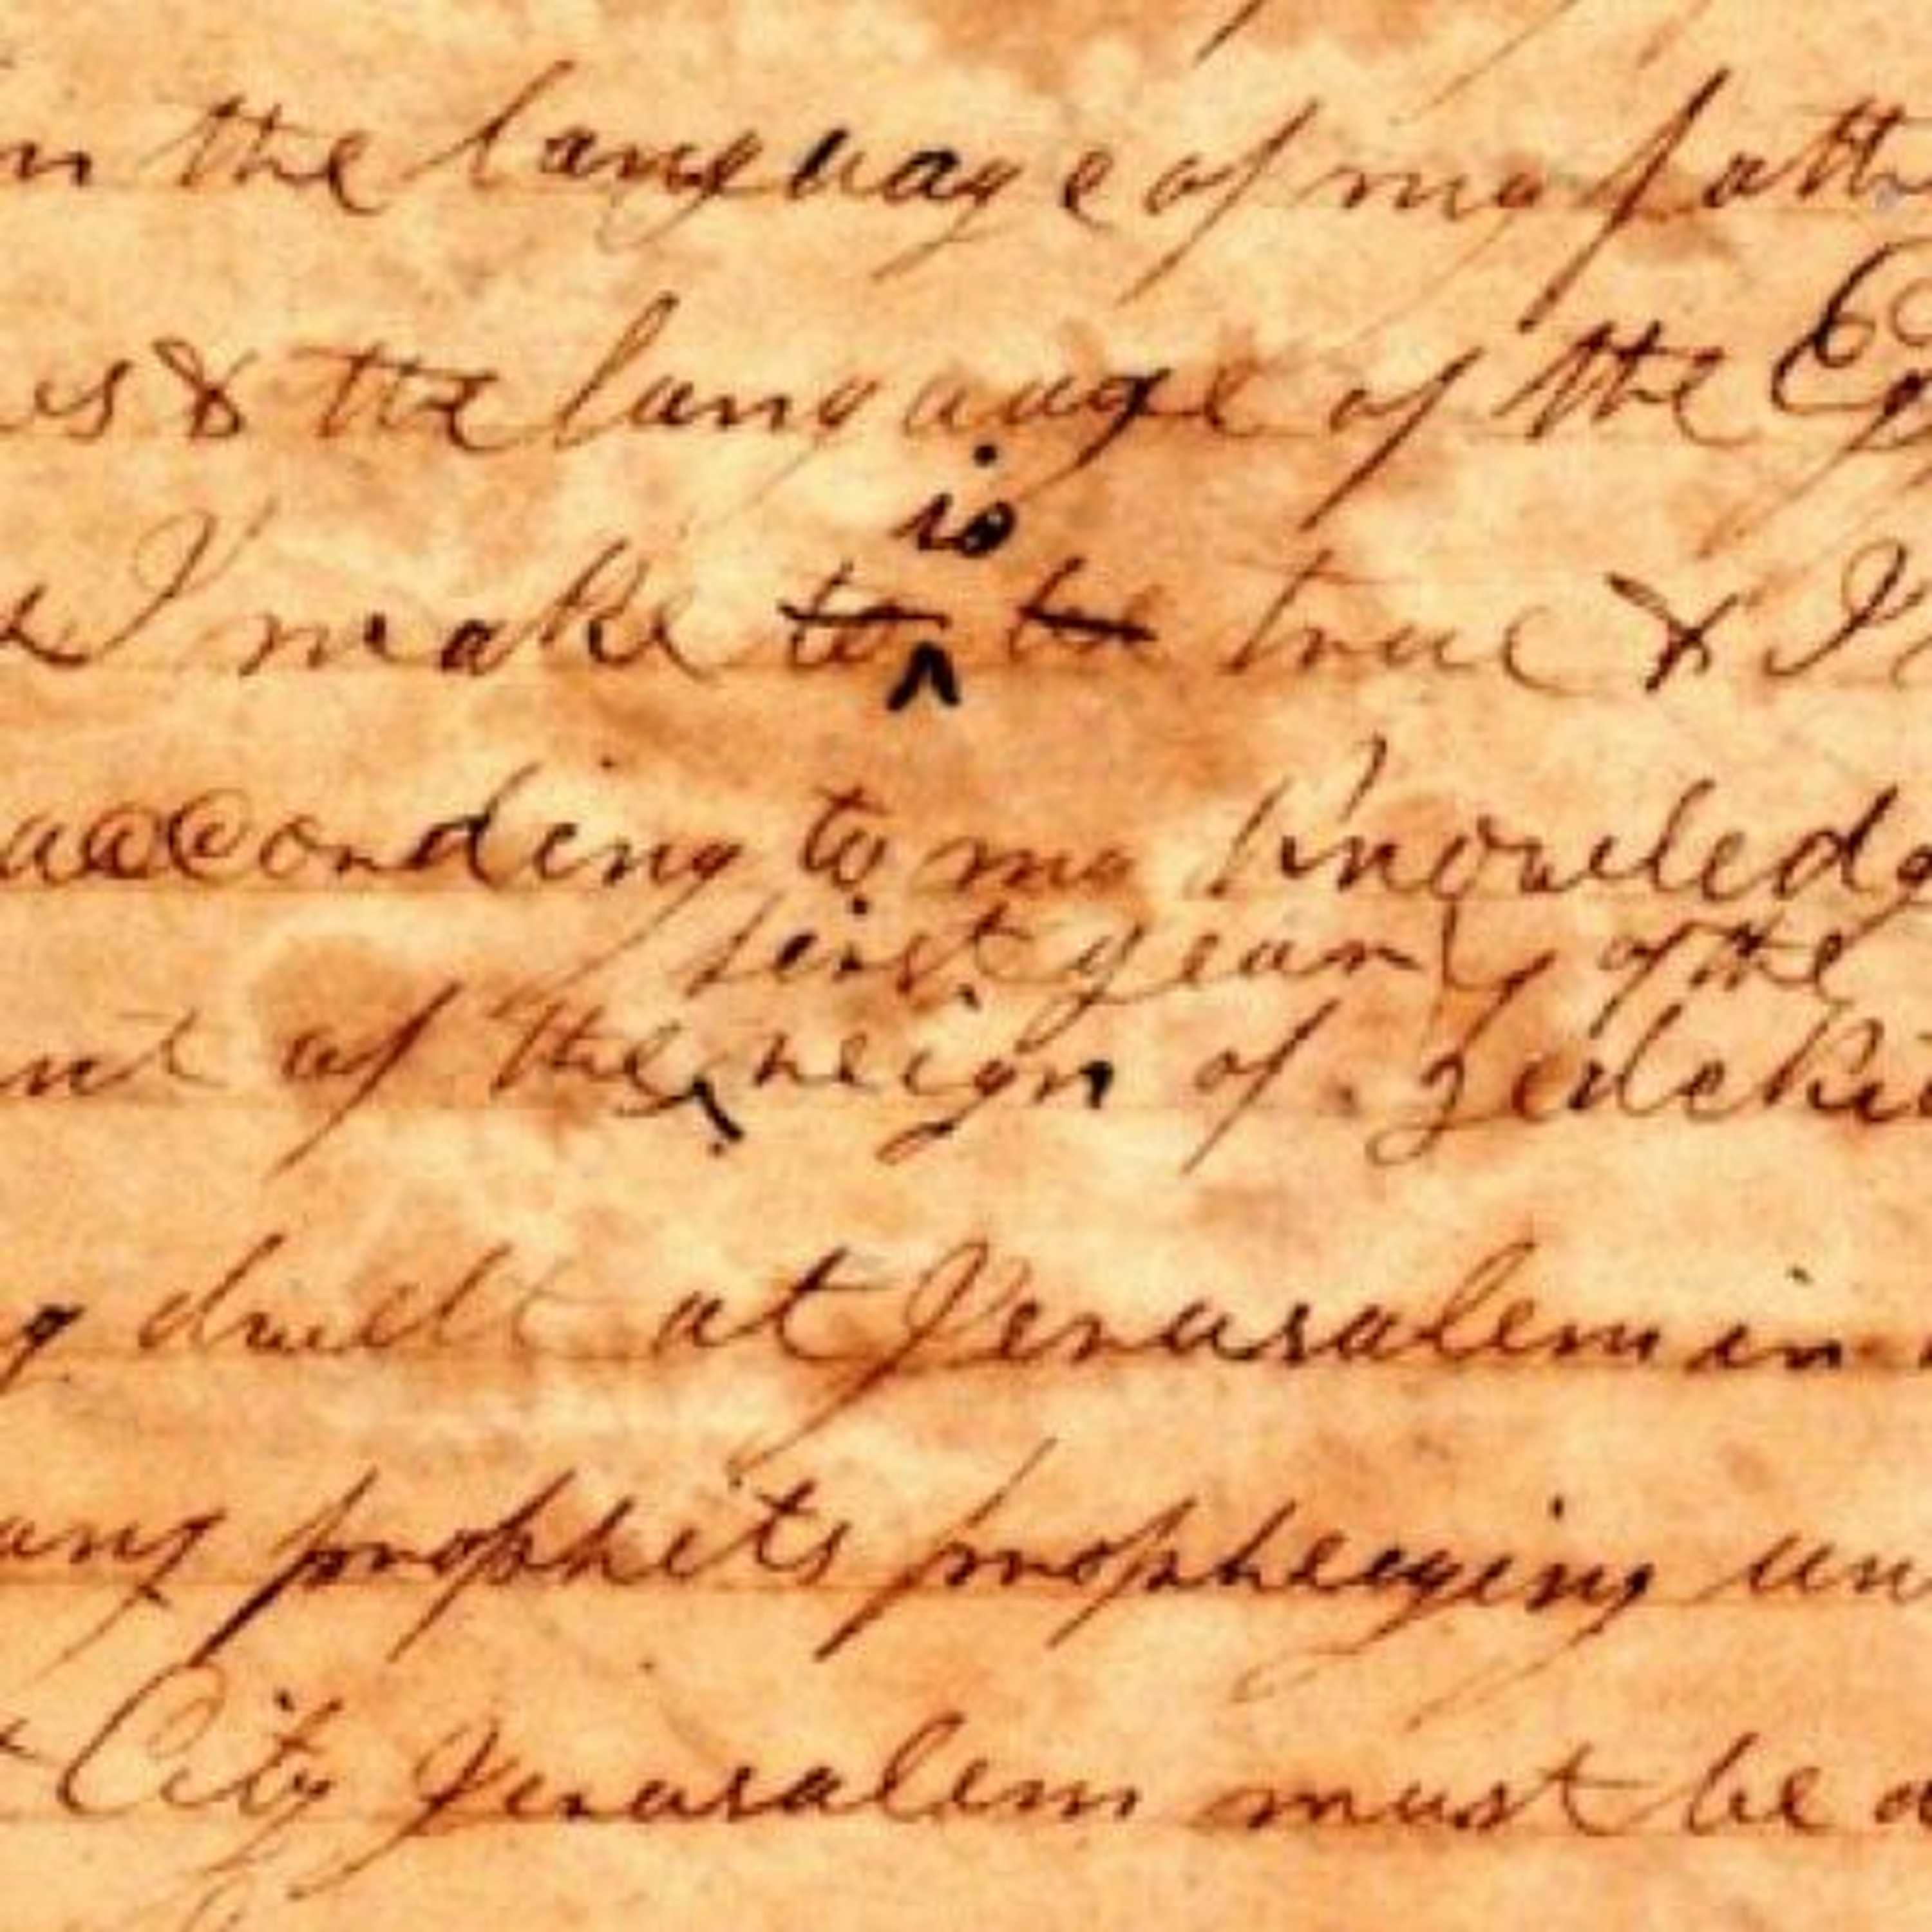 n the language of my fath
es & the langauge of the Eg
I make to be true & I
is
according to my knowledg
first year of the
nt of the reign of Zedeki
g dwelt at Jerusalem in
any prophets prophesying un
City Jerusalem must be d